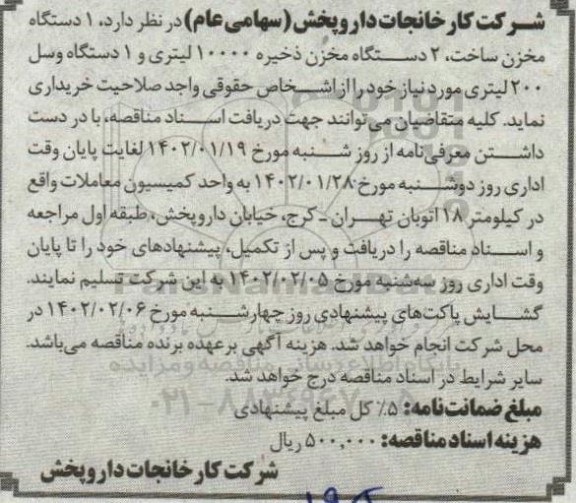 شرکت کارخانجات داروپخش (سهامی عام) در نظر دارد، ۱ دستگاه
مخزن ساخت، ۲ دستگاه مخزن ذخیره ۱۰۰۰۰ لیتری و ۱ دستگاه وسل
۲۰۰ لیتری مورد نیاز خود را از اشخاص حقوقی واجد صلاحیت خریداری
نماید. کلیه متقاضیان می‌توانند جهت دریافت اسناد مناقصه، با در دست
داشتن معرفی‌نامه از روز شنبه مورخ ۱۴۰۲/۰۱/۱۹ لغایت پایان وقت
اداری روز دوشنبه مورخ ۱۴۰۲/۰۱/۲۸ به واحد کمیسیون معاملات واقع
در کیلومتر ۱۸ اتوبان تهران - کرج، خیابان داروپخش، طبقه اول مراجعه
و اسناد مناقصه را دریافت و پس از تکمیل، پیشنهادهای خود را تا پایان
وقت اداری روز سه‌شنبه مورخ ۱۴۰۲/۰۲/۰۵ به این شرکت تسلیم نمایند.
گشایش پاکت‌های پیشنهادی روز چهارشنبه مورخ ۱۴۰۲/۰۲/۰۶ در
محل شرکت انجام خواهد شد. هزینه آگهی بر عهده برنده مناقصه می‌باشد.
سایر شرایط در اسناد مناقصه درج خواهد شد.
مبلغ ضمانت‌نامه: ۵٪ کل مبلغ پیشنهادی
هزینه اسناد مناقصه: ۵۰۰,۰۰۰ ریال
شرکت کارخانجات داروپخش